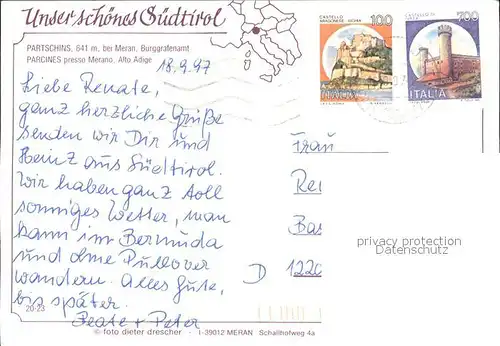 Unser schönes Südtirol
PARTSCHINS, 641 m, bei Meran, Burggrafenamt
PARCINES presso Merano, Alto Adige
18.9.97
CASTELLO
ARAGONESE · ISCHIA
100
700
ITALIA
Liebe Renate,
ganz herzliche Grüße
senden wir Dir und
Heinz aus Südtirol.
Wir haben ganz toll
sonniges Wetter, man
kann im Bermuda
und ohne Pullover
wandern. Alles Gute,
bis später.
Beate + Peter
Frau
Re
Bas
D 122
privacy protection
Datenschutz
20:23
© foto dieter drescher · I-39012 MERAN Schallhofweg 4a